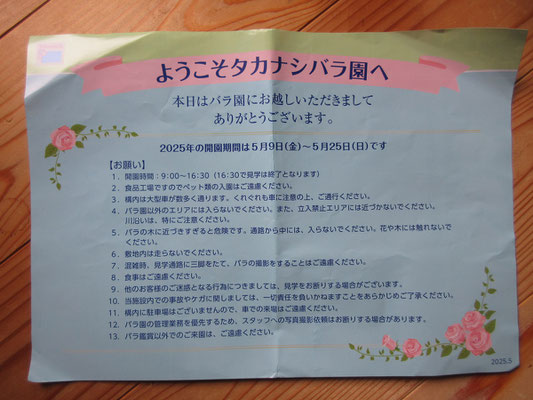 ようこそタカナシバラ園へ
本日はバラ園にお越しいただきまして
ありがとうございます。
2025年の開園期間は5月9日(金)～5月25日(日)です
【お願い】
1. 開園時間:9:00～16:30 (16:30で見学は終了となります)
2. 食品工場ですのでペット類の入園はご遠慮ください。
3. 構内は大型車が数多く通ります。くれぐれも車に注意の上、ご通行ください。
4. バラ園以外のエリアには入らないでください。また、立入禁止エリアには近づかないでください。
川沿いは、特にご注意ください。
5. バラの木に近づきすぎると危険です。通路から中には、入らないでください。花や木には触れないで
ください。
6. 敷地内は走らないでください。
7. 混雑時、見学通路に三脚をたて、バラの撮影をすることはご遠慮ください。
8. 食事はご遠慮ください。
9. 他のお客様のご迷惑となる行為につきましては、見学をお断りする場合がございます。
10. 当施設内での事故やケガに関しましては、一切責任を負いかねますことをあらかじめご了承ください。
11. 構内に駐車場はございませんので、車での来場はご遠慮ください。
12. バラ園の管理業務を優先するため、スタッフへの写真撮影依頼はお断りする場合があります。
13. バラ鑑賞以外でのご来園は、ご遠慮ください。
2025.5